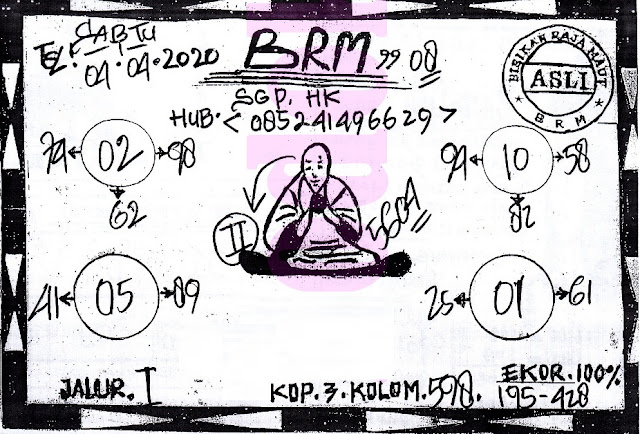 SABTU
TGL. 04.04.2020
BRM 99 08
SGP. HK
HUB. < 085241496629 >
BISIKAN RAJA MAUT
ASLI
BRM
74 02 98
62
94 10 58
82
II
41 05 89
25 01 61
JALUR. I
KOP. 3. KOLOM. 598.
EKOR. 100%
195-428